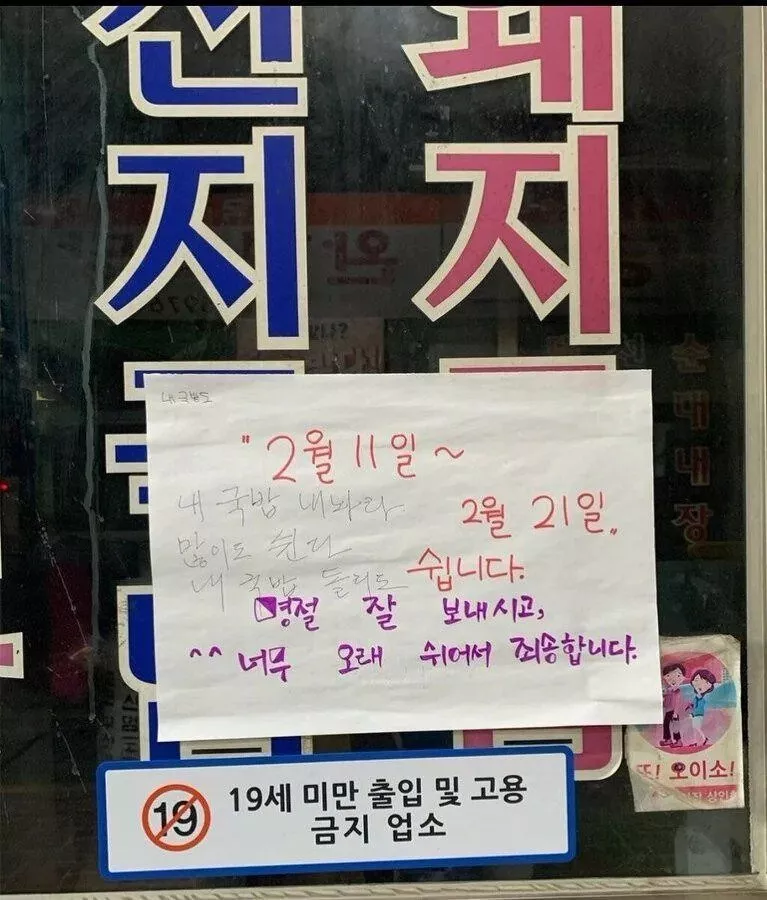 선지
돼지
내 국밥도
"2월 11일 ~
2월 21일"
쉽니다.
내 국밥 내놔라
많이도 쉰다
내 국밥 돌리도
명절 잘 보내시고,
^^ 너무 오래 쉬어서 죄송합니다.
순대내장
또! 오이소!
19
19세 미만 출입 및 고용
금지 업소